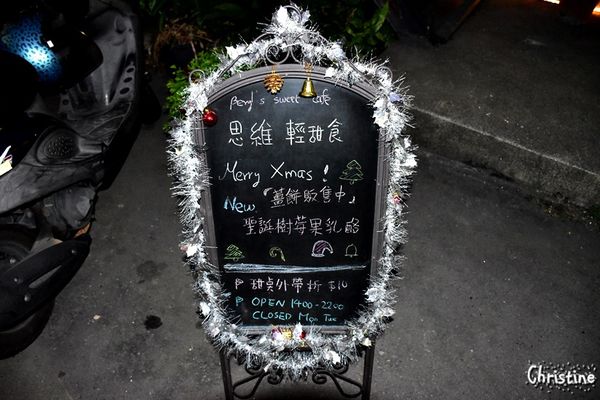 Beryl's sweet cafe
思維 輕甜食
Merry Xmas!
New「薑餅販售中」
聖誕樹莓果乳酪
甜桌外帶折 $10
OPEN 1400-2200
CLOSED Mon Tue
Christine